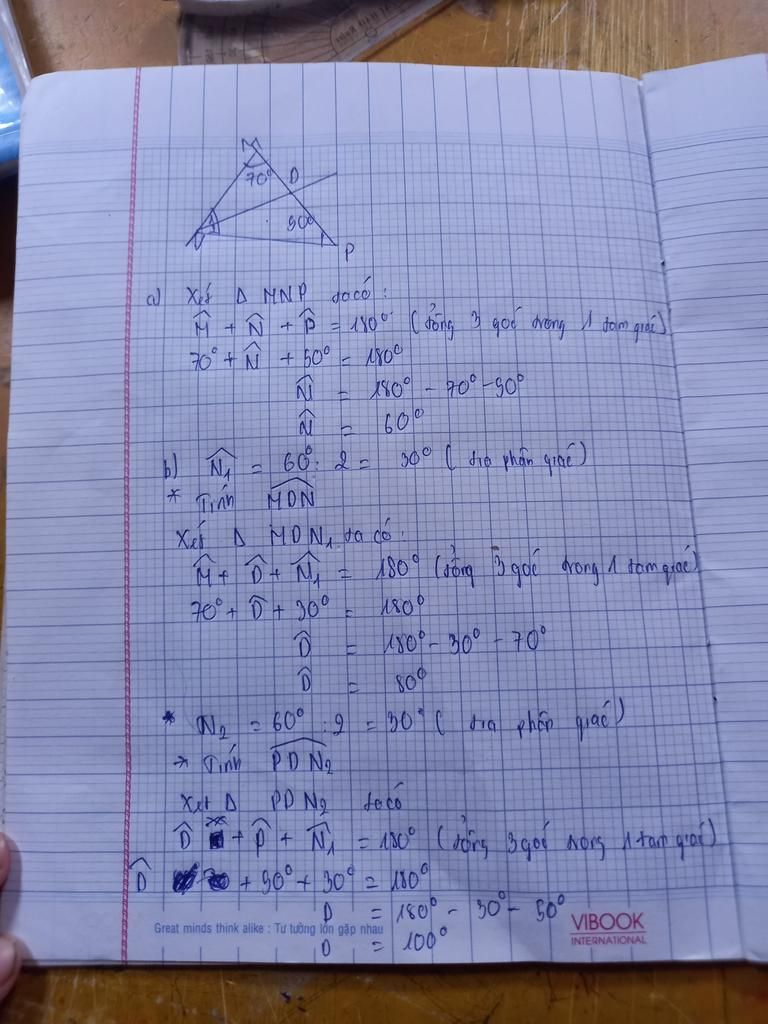 M
70° D
50°
P
a) Xét Δ MNP ta có:
M̂ + N̂ + P̂ = 180° (tổng 3 góc trong 1 tam giác)
70° + N̂ + 50° = 180°
N̂ = 180° - 70° - 50°
N̂ = 60°
b) N̂₁ = 60° : 2 = 30° (tia phân giác)
* Tính M̂DN
Xét Δ MDN₁ ta có:
M̂ + D̂ + N̂₁ = 180° (tổng 3 góc trong 1 tam giác)
70° + D̂ + 30° = 180°
D̂ = 180° - 30° - 70°
D̂ = 80°
* N₂ = 60° : 2 = 30° (tia phân giác)
→ Tính P̂DN₂
Xét Δ PDN₂ ta có
D̂ + P̂ + N̂₁ = 180° (tổng 3 góc trong 1 tam giác)
D̂ + 50° + 30° = 180°
D = 180° - 30° - 50°
D = 100°
Great minds think alike : Tư tưởng lớn gặp nhau
VIBOOK
INTERNATIONAL